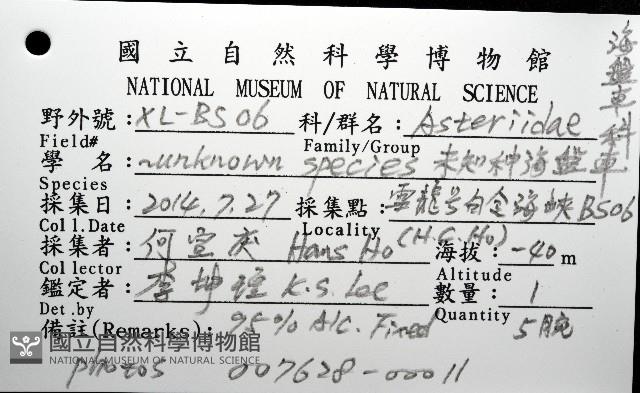 國立自然科學博物館
NATIONAL MUSEUM OF NATURAL SCIENCE
海盤車科
野外號：XL-BS06 科/群名：Asteriidae
Field# Family/Group
學 名：~unknown species 未知种海盤車
Species
採集日：2014.7.27 採集點：雲龍号白令海峽BS06
Col l.Date Locality
採集者：何宣庆 Hans Ho (H.C.Ho) 海拔：-40m
Col lector Altitude
鑑定者：李坤瑄 K.S. Lee 數量：1
Det.by Quantity
備註(Remarks)：95% Alc. Fixed 5腕
國立自然科學博物館
NATIONAL MUSEUM OF NATURAL SCIENCE
photos 007628-00011